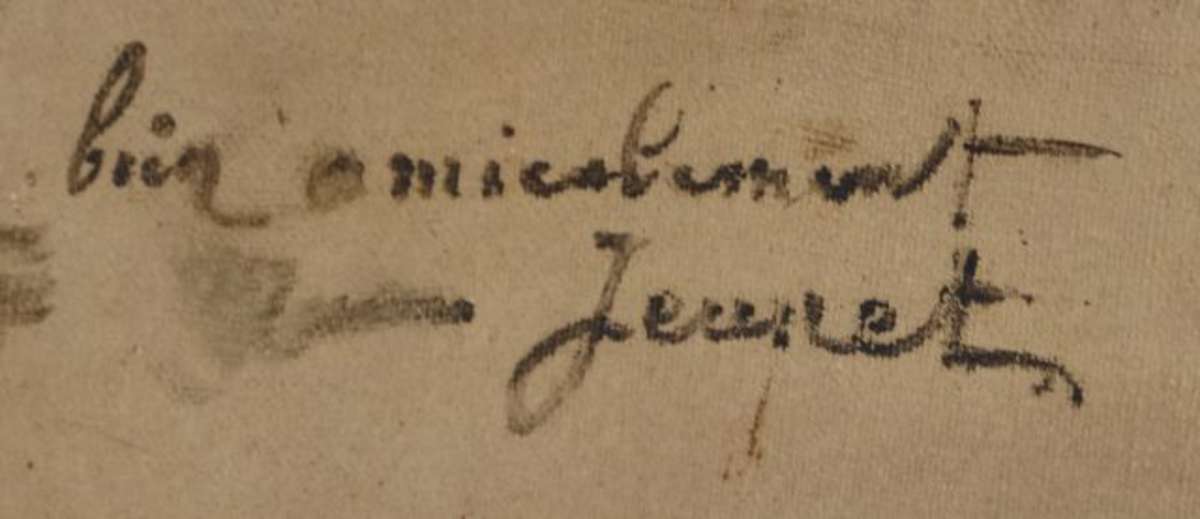 bien amicalement
Jeunet